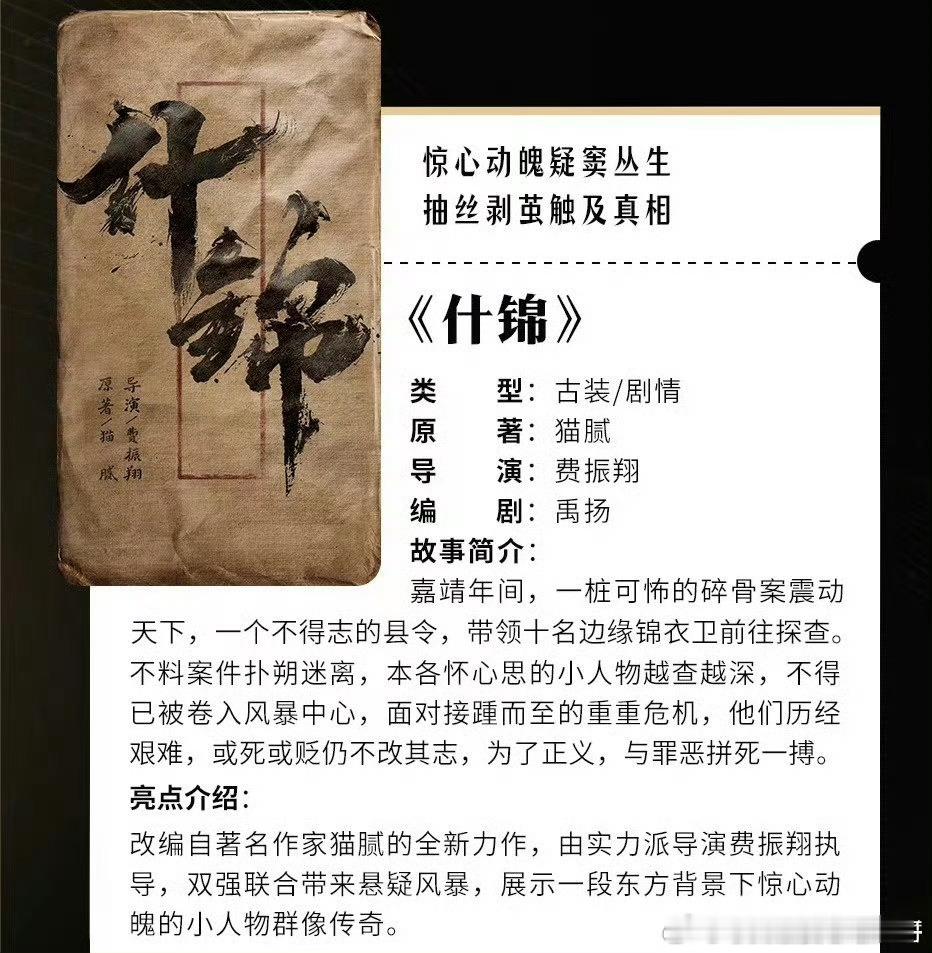 什锦
导演/费振翔
原著/猫腻
惊心动魄疑窦丛生
抽丝剥茧触及真相
《什锦》
类型：古装/剧情
原著：猫腻
导演：费振翔
编剧：禹扬
故事简介：
嘉靖年间，一桩可怖的碎骨案震动
天下，一个不得志的县令，带领十名边缘锦衣卫前往探查。
不料案件扑朔迷离，本各怀心思的小人物越查越深，不得
已被卷入风暴中心，面对接踵而至的重重危机，他们历经
艰难，或死或贬仍不改其志，为了正义，与罪恶拼死一搏。
亮点介绍：
改编自著名作家猫腻的全新力作，由实力派导演费振翔执
导，双强联合带来悬疑风暴，展示一段东方背景下惊心动
魄的小人物群像传奇。